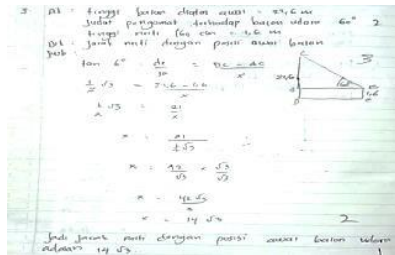 3 Dit : tinggi balon diatas awal = 22,6 m
Sudut pengamat terhadap balon udara 60° 2
tinggi nisti 160 cm = 1,6 m
Dit : jarak nisti dengan posisi awal balon
Jwb :
tan 6° = de/sa = DC - AC / x
½ √3 = 22,6 - 1,6 / x
½ √3 = 21 / x
x = 21 / ½ √3
x = 42/√3 × √3/√3
x = 42 √3 / 3
x = 14 √3
3
C
22,6
60°
1,6
2
Jadi jarak nisti dengan posisi awal balon udara
adalah 14 √3
1